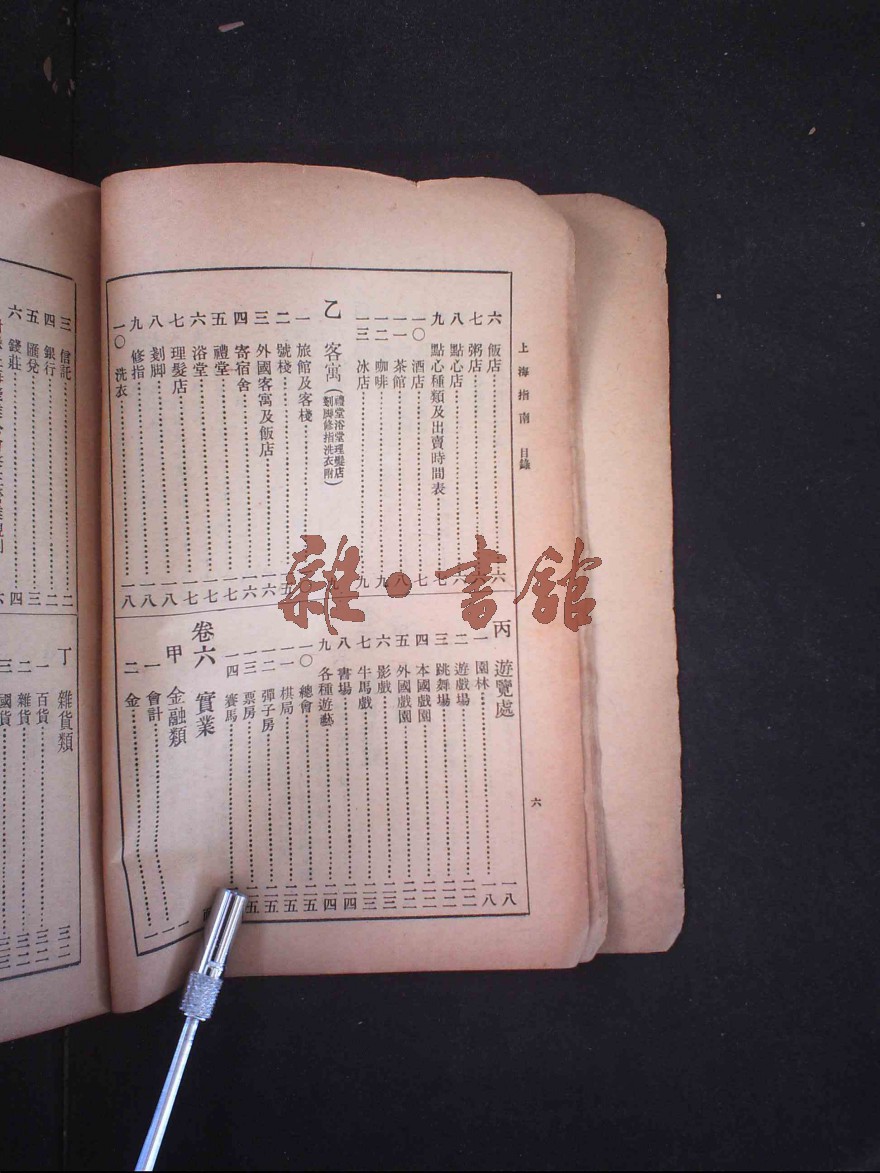 上海指南 目錄
六
六 飯店……一六
七 粥店……一六
八 點心店……一六
九 點心種類及出賣時間表……一七
一〇 酒店……一七
一一 茶館……一八
一二 咖啡……一九
一三 冰店……一九
乙 客寓(禮堂浴堂理髮店剗脚修指洗衣附)
一 旅館及客棧
二 號棧
三 外國客寓及飯店……一六
四 寄宿舍……一六
五 禮堂……一七
六 浴堂……一七
七 理髮店……一七
八 剗脚……一八
九 修指……一八
一〇 洗衣……一八
丙 遊覽處……一八
一 園林……一八
二 遊戲場……二二
三 跳舞場……二二
四 本國戲園……二二
五 外國戲園……二二
六 影戲……二三
七 牛馬戲……二三
八 書場……二四
九 各種遊藝……二四
一〇 總會……二五
一一 棋局……二五
一二 彈子房……二五
一三 票房……二五
一四 賽馬
卷六 實業
甲 金融類……一
一 會計……一
二 金……一
三 信託……二
四 銀行……二
五 匯兌……三
六 錢莊……四
丁 雜貨類
一 百貨
二 雜貨
三 國貨
雜·書館